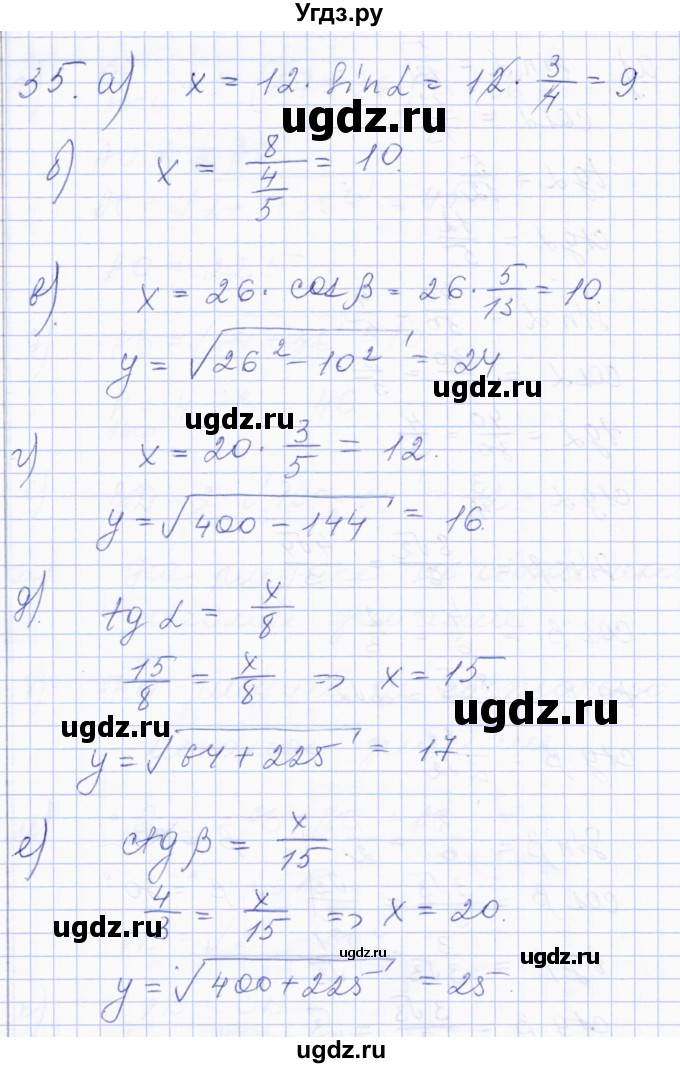 Угдз.ру
35. а) x = 12 · sin α = 12 · 3/4 = 9.
ugdz.ru
б) x = 8/(4/5) = 10.
в) x = 26 · cos β = 26 · 5/13 = 10.
y = √(26² − 10²) = 24
ugdz.ru
ugdz.ru
г) x = 20 · 3/5 = 12.
y = √(400 − 144) = 16.
д) tg α = x/8
15/8 = x/8 => x = 15.
ugdz.ru
ugdz.ru
y = √(64 + 225) = 17.
е) ctg β = x/15.
4/3 = x/15 => x = 20.
ugdz.ru
ugdz.ru
ugdz.ru
y = √(400 + 225) = 25.
ugdz.ru